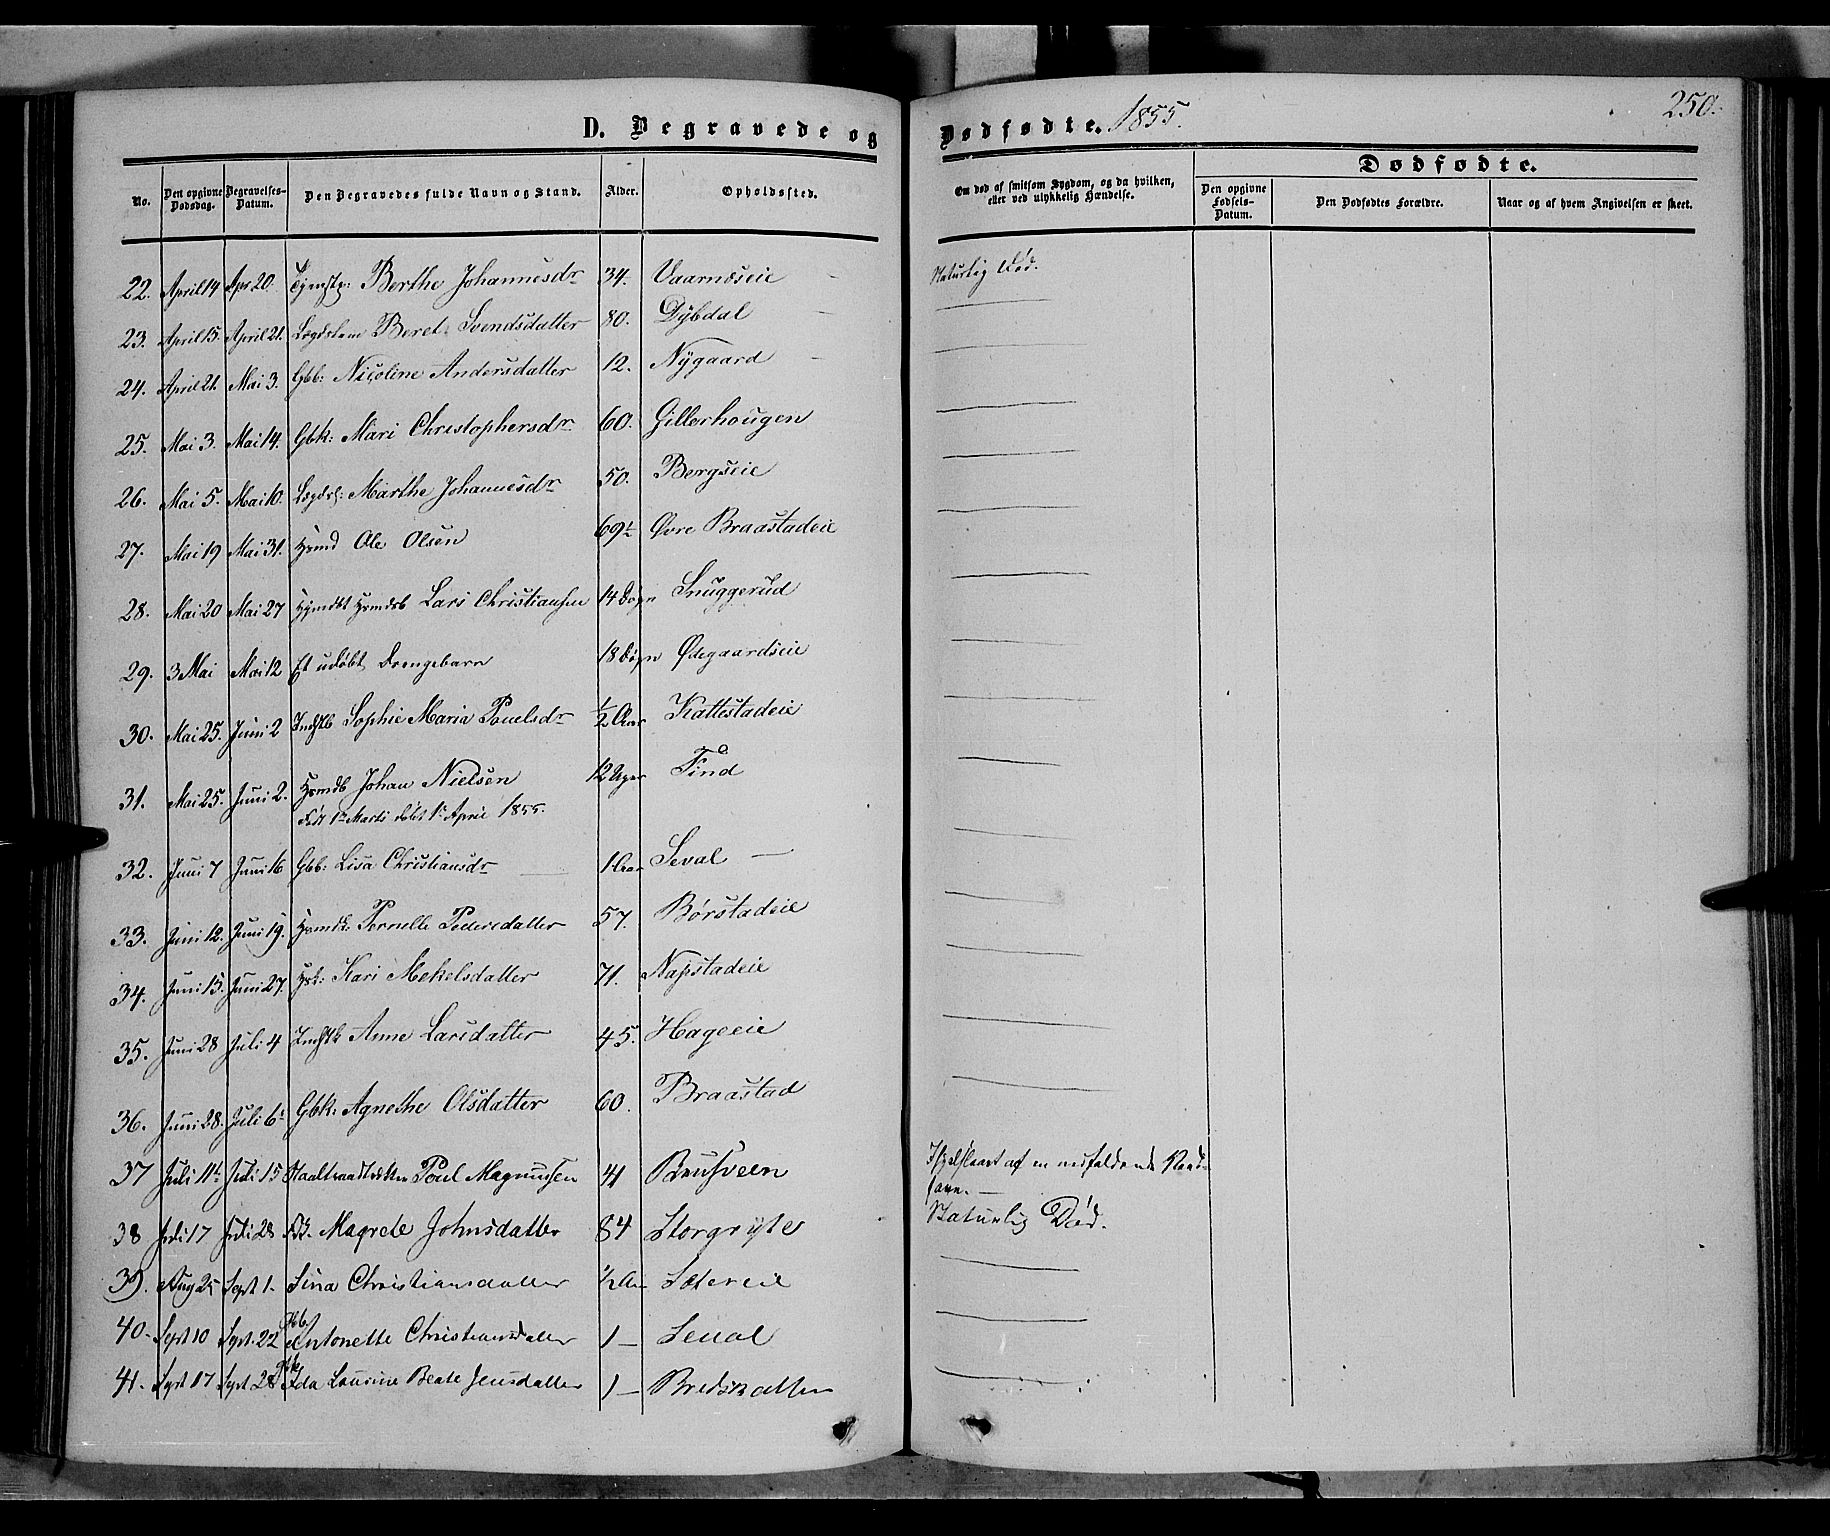 D. Begravede og Dødfødte. 1855. 250.
No. Den opgivne Dødsdag. Begravelses-Datum. Den Begravedes fulde Navn og Stand. Alder. Opholdssted. Om død af smitsom Sygdom, og da hvilken, eller ved ulykkelig Hændelse. Dødfødte. Den opgivne Fødsels-Datum. Den Dødfødtes Forældre. Naar og af hvem Angivelsen er skeet.
22. April 14 Apr 20. Berthe Johannesdr 34. Vaarnæseie Naturlig Død.
23. April 15. April 21. Lægdslem Beret Svendsdatter 80. Dybdal
24. April 21. Mai 3. Gbb: Nicoline Andersdatter 12. Nygaard
25. Mai 3. Mai 14. Gbk: Mari Christophersdr 60. Gillerhougen
26. Mai 5. Mai 10. Marthe Johannesdr 50. Bergseie
27. Mai 19 Mai 31. Hsmd Ole Olsen 69 Øvre Braastadeie
28. Mai 20 Mai 27 Lars Christiansen 14 Døgn Snuggerud
29. 3 Mai Mai 12 Et udøbt Drengebarn 18 Døgn Ødegaardseie
30. Mai 25. Juni 2 Indstb Sophie Maria Pouelsdr 1/2 Aar Kattestadeie
31. Mai 25. Juni 2. Hsmdb Johan Nielsen 12 Uger Find
Født 1ste Marts døbt 1ste April 1855.
32. Juni 7 Juni 16 Gbb: Lisa Christiansdr 1 Aar Seval
33. Juni 12. Juni 19. Hsmdk: Pernille Pedersdatter 57. Børstadeie
34. Juni 15. Juni 27. Hsk: Kari Mekelsdatter 71. Napstadeie
35. Juni 28 Juli 4 Indstk Anne Larsdatter 45. Hageeie
36. Juni 28. Juli 6 Gbk: Agnethe Olsdatter 60. Braastad
37 Juli 11 Juli 15 Poul Magnussen 41 Brusveen Ihjelslaaet af en nedfaldende
38 Juli 17 Juli 28 Fdk. Magrete Johnsdatter 84 Storgryte Naturlig Død.
39. Aug 25 Sept 1. Lina Christiansdatter 1/2 Aar Sætereie
40. Sept 10 Sept. 22 Gbb Antonette Christiansdatter 1 Seval
41. Sept 17 Sept 28 Ida Laurine Beate Jensdatter 1 Bredskatten